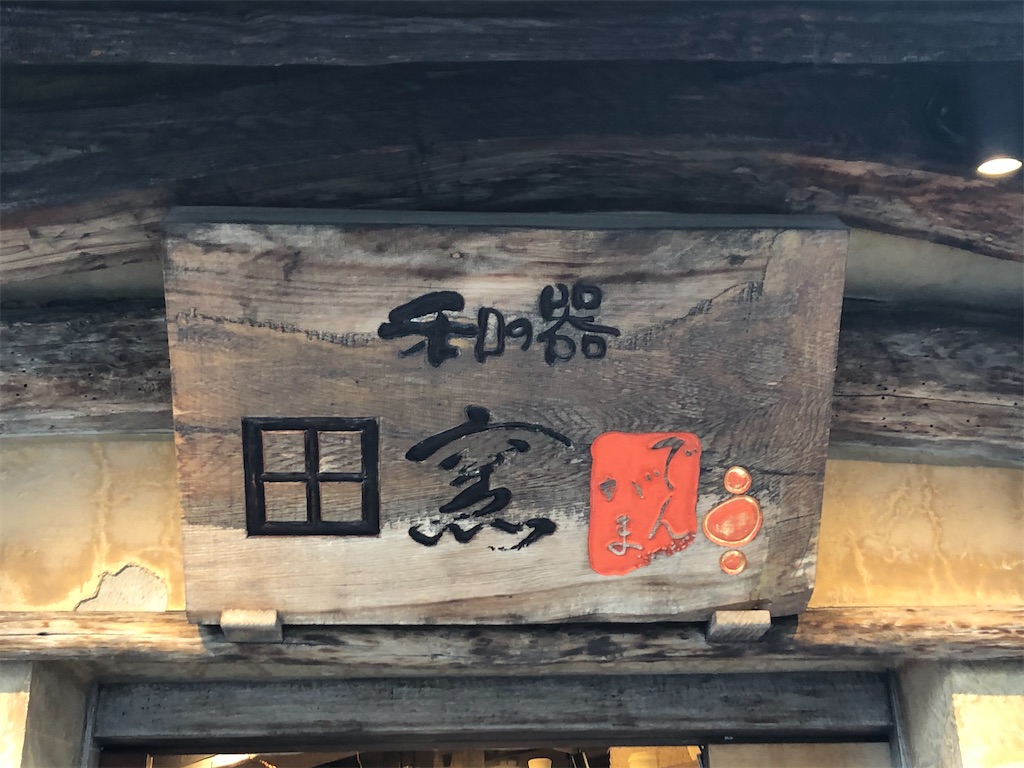 和の器
田窯
でん
がま